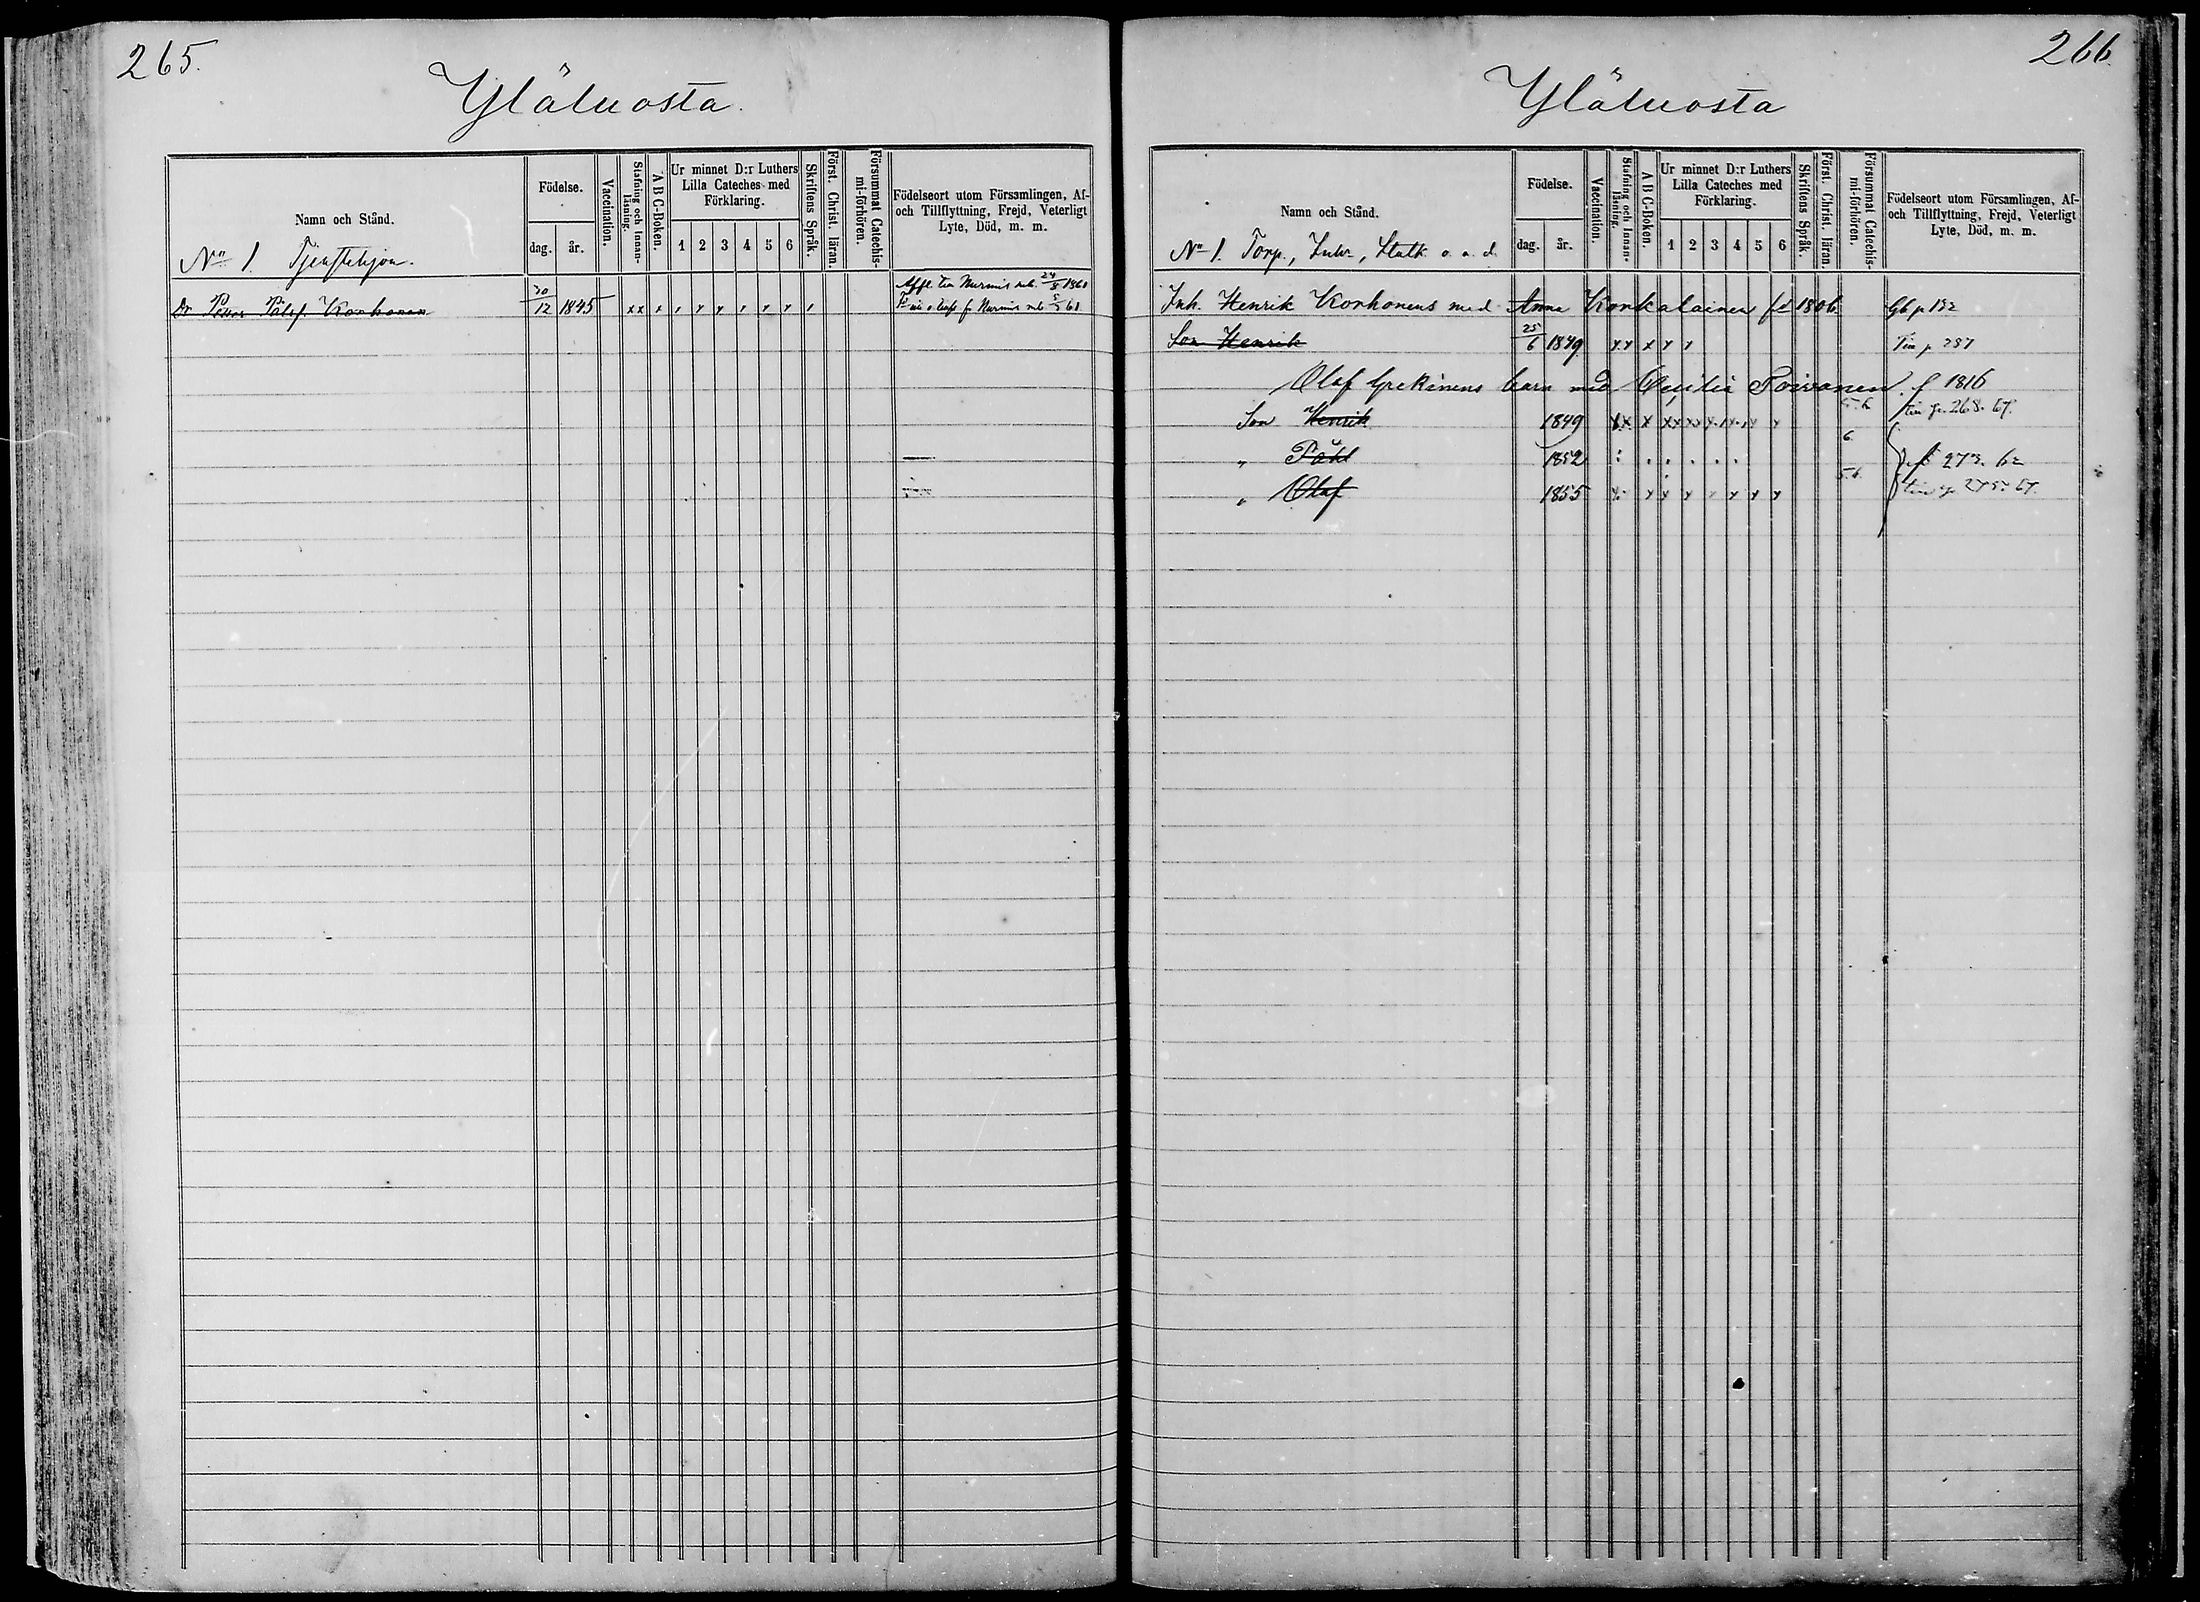 265.
Yläluosta.
Namn och Stånd.
Födelse.
dag.
år.
Vaccination.
Stafning och Innan-
läsning.
A B C-Boken.
Ur minnet D:r Luthers
Lilla Cateches med
Förklaring.
1 2 3 4 5 6
Skriftens Språk.
Först. Christ. läran.
Försummat Catechis-
mi-förhören.
Födelseort utom Församlingen, Af-
och Tillflyttning, Frejd, Veterligt
Lyte, Död, m. m.
No 1. Tjenstehjon.
Dr Petter Pålsf Korhonen 30/12 1845 x x x
Nurmis 24/8 1860
fr Nurmis 61
266.
Yläluosta
Namn och Stånd.
Födelse.
dag.
år.
Vaccination.
Stafning och Innan-
läsning.
A B C-Boken.
Ur minnet D:r Luthers
Lilla Cateches med
Förklaring.
1 2 3 4 5 6
Skriftens Språk.
Först. Christ. läran.
Försummat Catechis-
mi-förhören.
Födelseort utom Församlingen, Af-
och Tillflyttning, Frejd, Veterligt
Lyte, Död, m. m.
No 1. Torp., Inh., Statk. o. a. d.
Inh. Henrik Korhonens med Anna Korkalainen fd 1806. Gb p 182
Son Henrik 25/6 1849 x x x x p 287
Olaf barn med Cecilia Toivanen f 1816
Son Henrik 1849 x x x 5.6. p. 268. 67.
" Påhl 1852 6. 273. 62
" Olaf 1855 x x x x x x x 5.6.